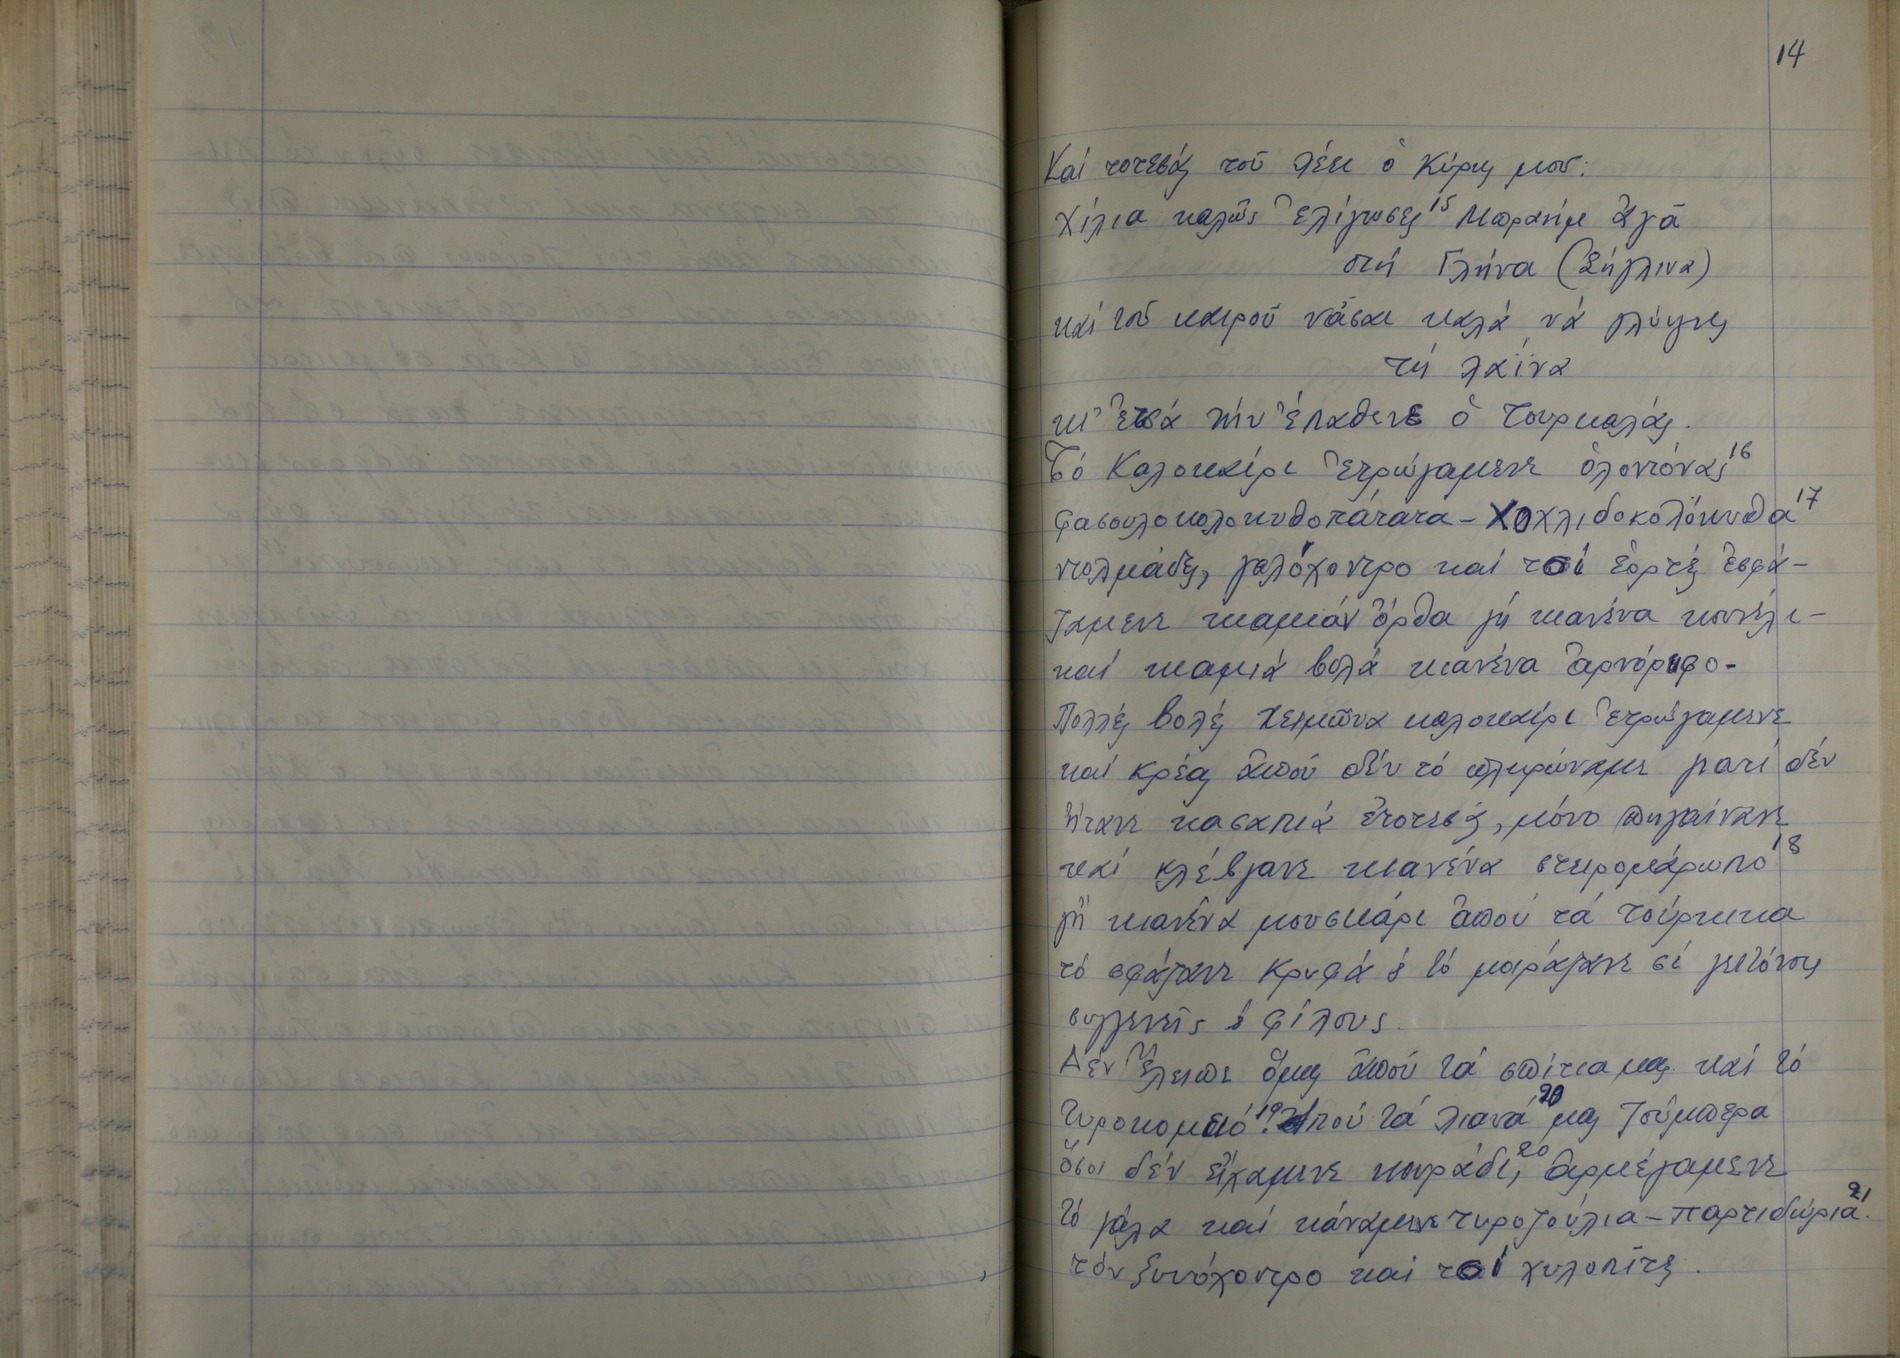 14
Καί τοτεσάς τοῦ λέει ὁ Κύρης μου:
χίλια καλῶς ἐλίγωσες¹⁵ Μπραήμ Ἀγᾶ
στή Γλήνα (Σήγλινα)
καί τοῦ καιροῦ νἆσαι καλά νά γλύψῃς
τή λαΐνα
κι' ἐτσά τήν ἔπαθενε ὁ Τουρκαλάς.
Τό Καλοκαίρι ἐτρώγαμενε ὁλοντόνας¹⁶
φασουλοκολοκυθοπάτατα - Χοχλιδοκολόκυθα¹⁷
ντολμάδες, γαλόχοντρο καί τσί ἑορτές ἐσφά-
ζαμενε κιαμιάν ὄρθα γή κιανένα κουνέλι -
καί κιαμιά βολά κιανένα ἀρνόριφο -
Πολλές βολές χειμῶνα καλοκαίρι ἐτρώγαμενε
καί κρέας ἀπού δέν τό πληρώναμε γιατί δέν
ἤτανε κασαπιά ἐτοτεσάς, μόνο πηγαίνανε
καί κλέβγανε κιανένα στειρομάρωπο¹⁸
γή κιανένα μουσκάρι ἀπού τά τούρκικα
τό σφάζανε κρυφά & τό μοιράζανε σέ γειτόνους
συγγενεῖς & φίλους.
Δέν ἔλειπε ὅμως ἀπού τά σπίτια μας καί τό
τυροκομειό¹⁹. Ἀπού τά λιανά²⁰ μας Τσούμπερα
ὅσοι δέν εἴχαμενε κουράδι,²⁰ ἀρμέγαμενε
τό γάλα καί κάναμενε τυροζούλια - παρτιδώρια²¹.
τόν ξυνόχοντρο καί τσί χυλοπίτες.